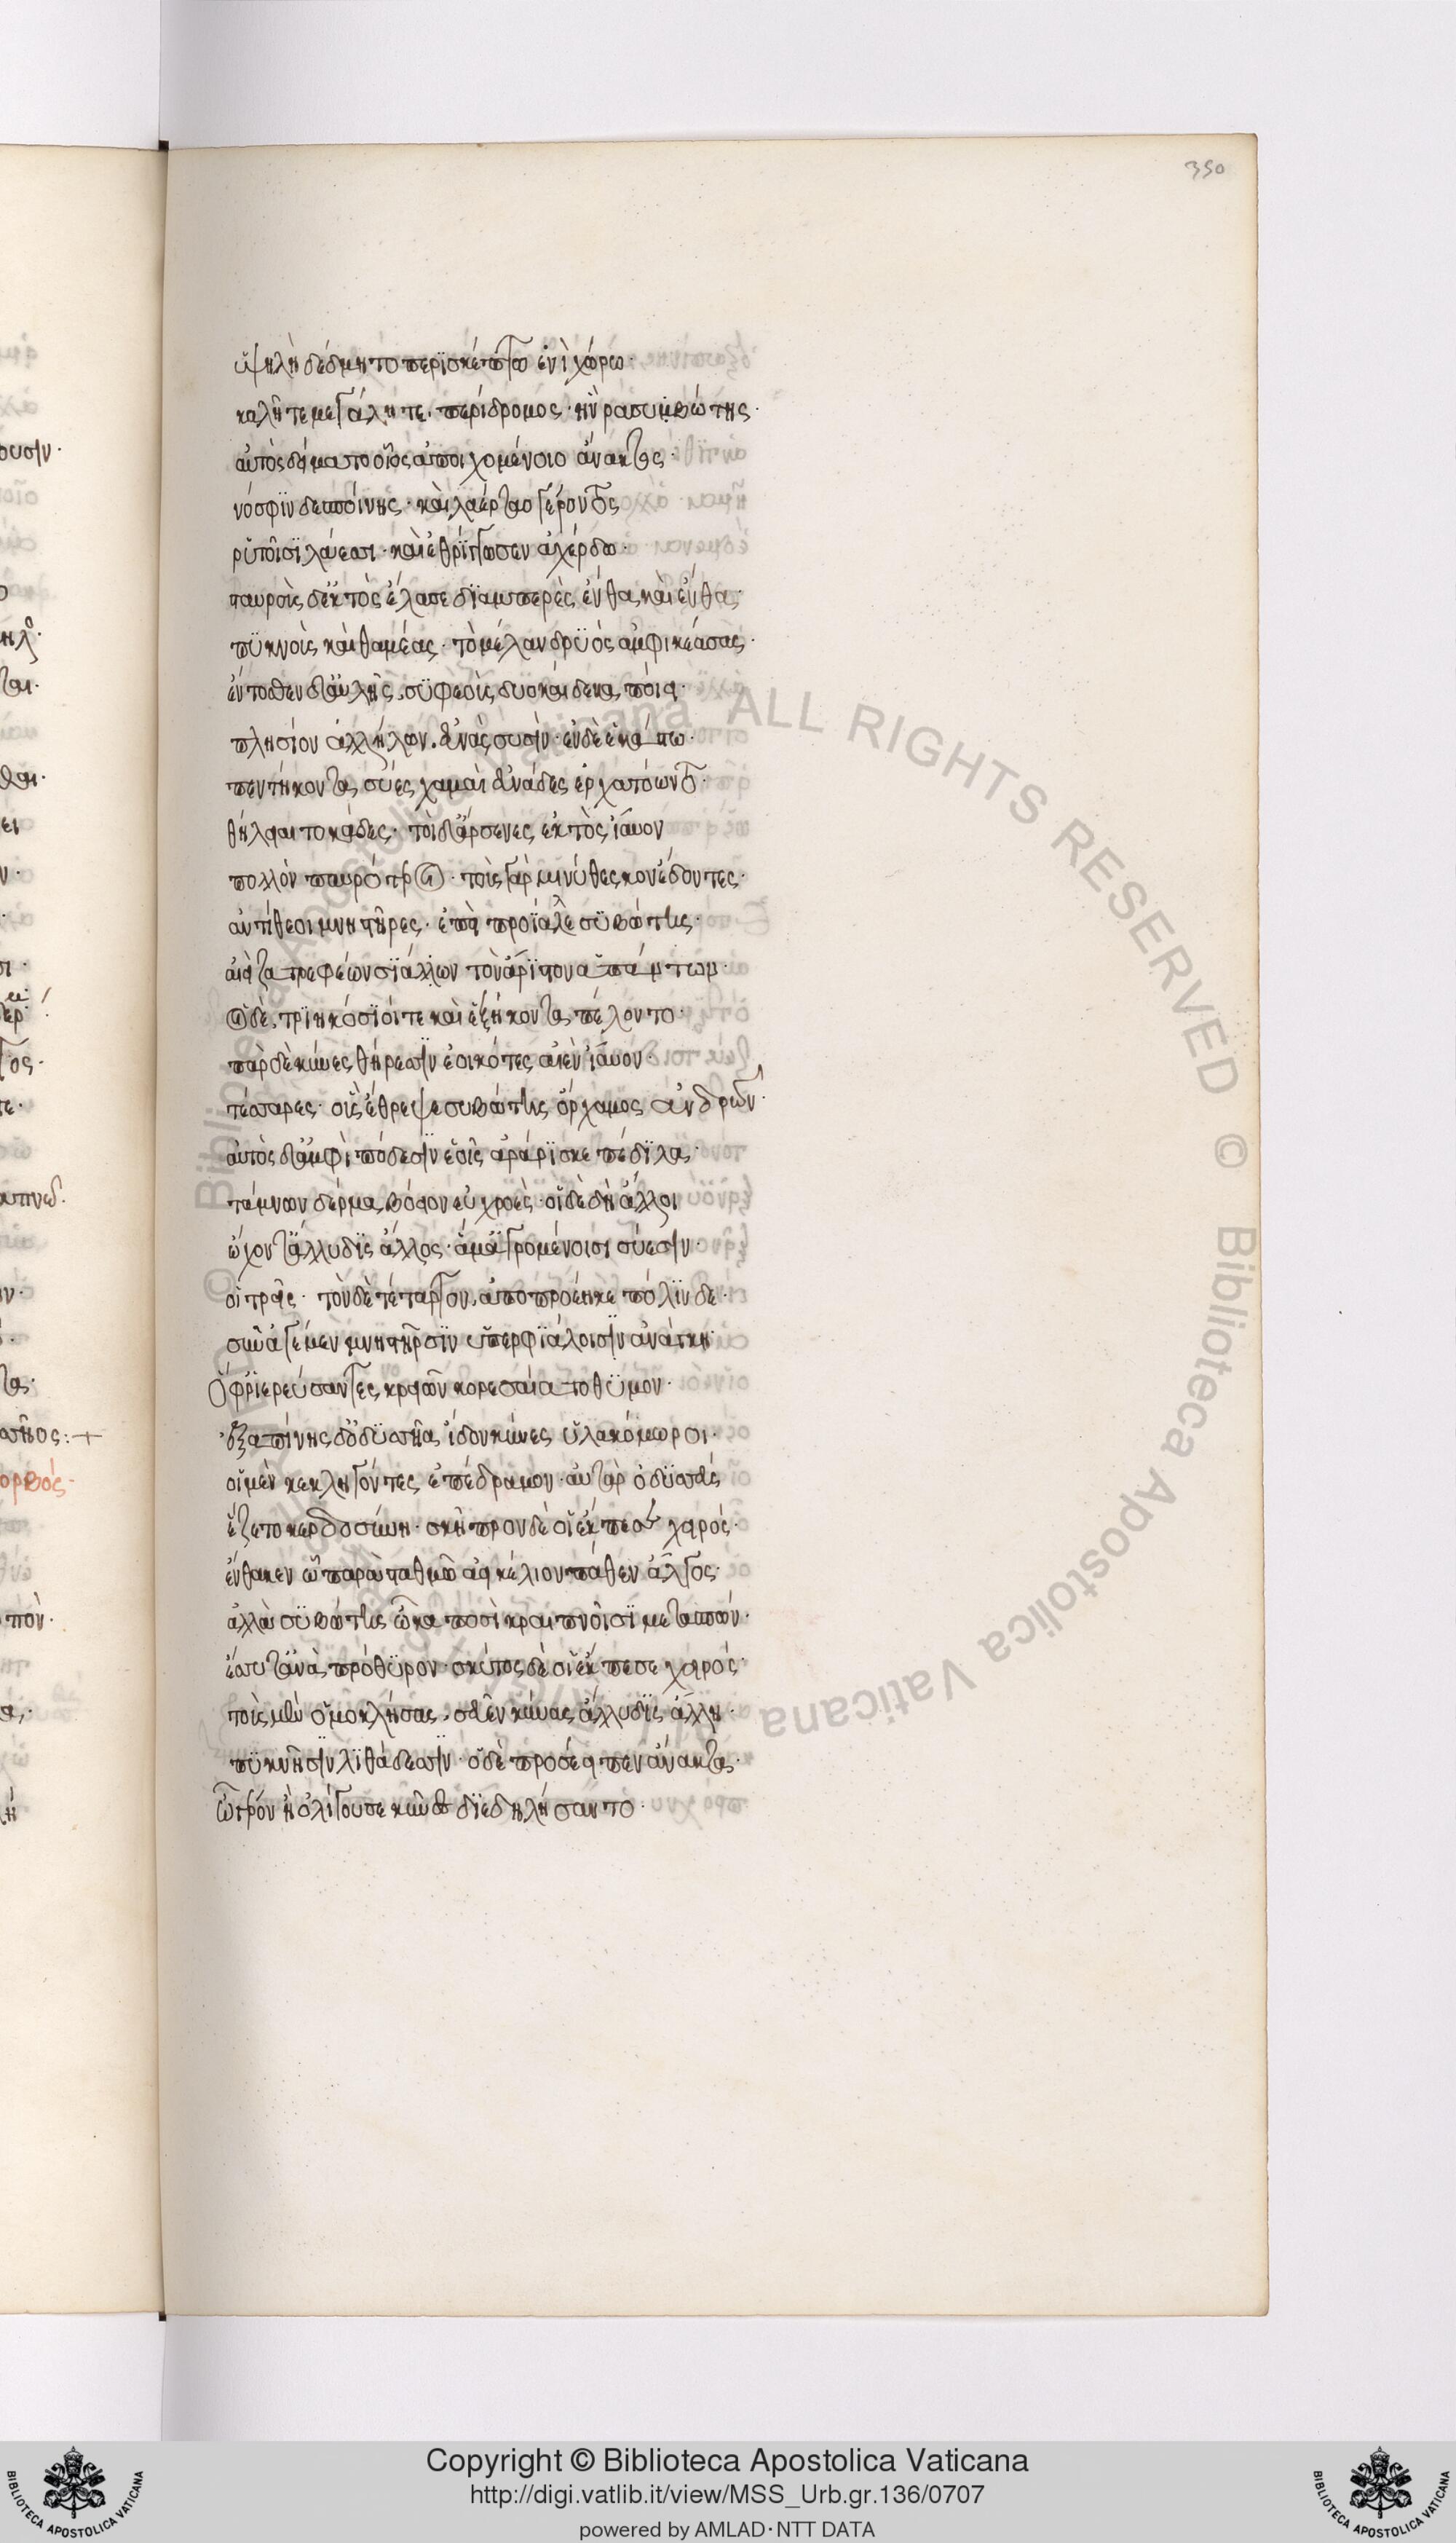 350
ὑψηλὴ δέδμητο περισκέπτω ἐνὶ χώρω·
καλή τε μεγάλη τε. περίδρομος· ἥν ῥα συβώτης·
αὐτὸς δείμαθ' οἷος ἀποιχομένοιο ἄνακτος·
νόσφιν δεσποίνης· καὶ λαέρταο γέροντος
ῥυτοῖσι λάεσσι· καὶ ἐθρίγκωσεν ἀχέρδω·
σταυροὺς δ' ἐκτὸς ἔλασε διαμπερὲς ἔνθα καὶ ἔνθα·
πυκνοὺς καὶ θαμέας· τὸ μέλαν δρυὸς ἀμφικεάσας·
ἔντοσθεν δ' αὐλῆς. συφεοὺς δυοκαίδεκα ποίει·
πλησίον ἀλλήλων. εὐνὰς συσὶν· ἐν δὲ ἑκάστω·
πεντήκοντα σύες χαμαὶ εὐνάδες ἐρχατόωντο·
θήλειαι τοκάδες· τοὶ δ' ἄρσενες ἐκτὸς ἴαυον
πολλὸν παυρότεροι· τοὺς γὰρ μινύθεσκον ἔδοντες·
ἀντίθεοι μνηστῆρες· ἐπεὶ προΐαλλε συβώτης·
αἰεὶ ζατρεφέων σιάλων τὸν ἄριστον ἁπάντων·
οἱ δὲ τριηκόσιοί τε καὶ ἑξήκοντα πέλοντο·
παρ δὲ κύνες θήρεσσιν ἐοικότες αἰὲν ἴαυον·
τέσσαρες· οὓς ἔθρεψε συβώτης ὄρχαμος ἀνδρῶν·
αὐτὸς δ' ἀμφὶ πόδεσσιν ἑοῖς ἀράρισκε πέδιλα·
τάμνων δέρμα βόειον εὐχροές· οἱ δὲ δὴ ἄλλοι
ᾤχοντ' ἄλλυδις ἄλλος· ἅμ' ἀγρομένοισι σύεσσιν·
οἱ τρεῖς· τὸν δὲ τέταρτον, ἀποπροέηκε πόλινδε·
σῦν ἀγέμεν μνηστῆρσιν ὑπερφιάλοισιν ἀνάγκη·
Ὄφρ' ἱερεύσαντες κρειῶν κορεσαίατο θυμὸν·
ἐξαπίνης δ' ὀδυσσῆα ἴδον κύνες ὑλακόμωροι·
οἱ μὲν κεκληγόντες ἐπέδραμον· αὐτὰρ ὀδυσσεὺς
ἕζετο κερδοσύνη· σκῆπτρον δὲ οἱ ἔκπεσε χειρός·
ἔνθα κεν ᾧ παρὰ σταθμῶ ἀεικέλιον πάθεν ἄλγος·
ἀλλὰ συβώτης ὦκα ποσὶ κραιπνοῖσι μετασπών·
ἔσσυτ' ἀνὰ πρόθυρον· σκύτος δὲ οἱ ἔκπεσε χειρός·
τοὺς μὲν ὁμοκλήσας. σεῦεν κύνας ἄλλυδις ἄλλη·
πυκνῆσιν λιθάδεσσιν· ὁ δὲ προσέειπεν ἄνακτα·
ὦ γέρον ἦ ὀλίγου σε κύνες διεδηλήσαντο·
Copyright © Biblioteca Apostolica Vaticana
http://digi.vatlib.it/view/MSS_Urb.gr.136/0707
powered by AMLAD·NTT DATA